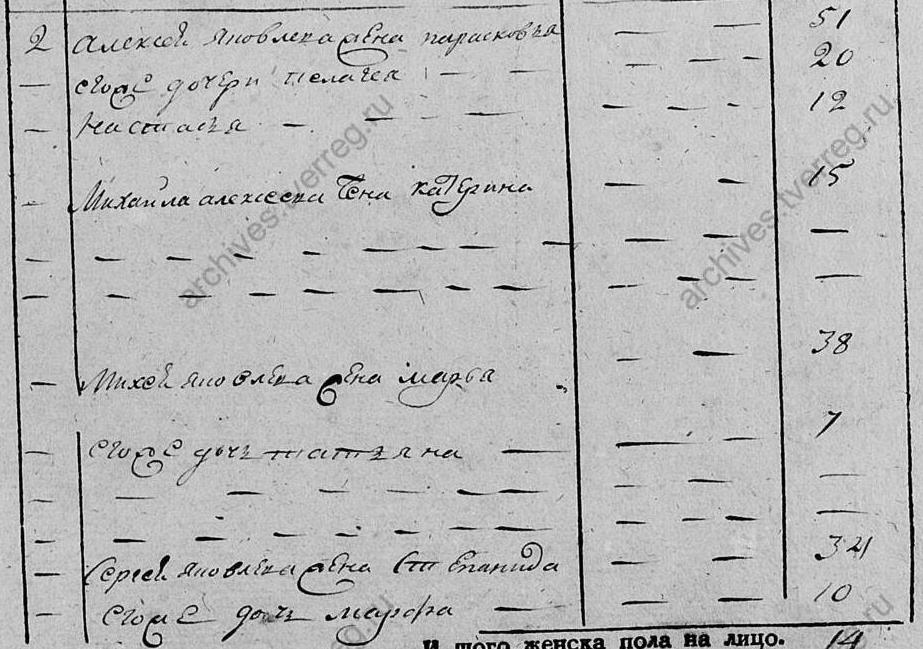 2 Алексея яковлева жена парасковья — — 51
— егоже дочери пелагея — — — — — 20
— настасья — — — — — — 12
— Михайла алексеева жена катерина — — 15
— — — — — — — — — — — —
— — — — — — — — — — — — —
— Михея яковлева жена марва — — 38
— егоже дочь татьяна — — — 7
— — — — — — — — — —
— — — — — — — — — — — —
— Сергея яковлева жена Степанида — — 34
— егоже дочь марфа — — — 10
И того женска пола на лицо. 14
archives.tverreg.ru
archives.tverreg.ru